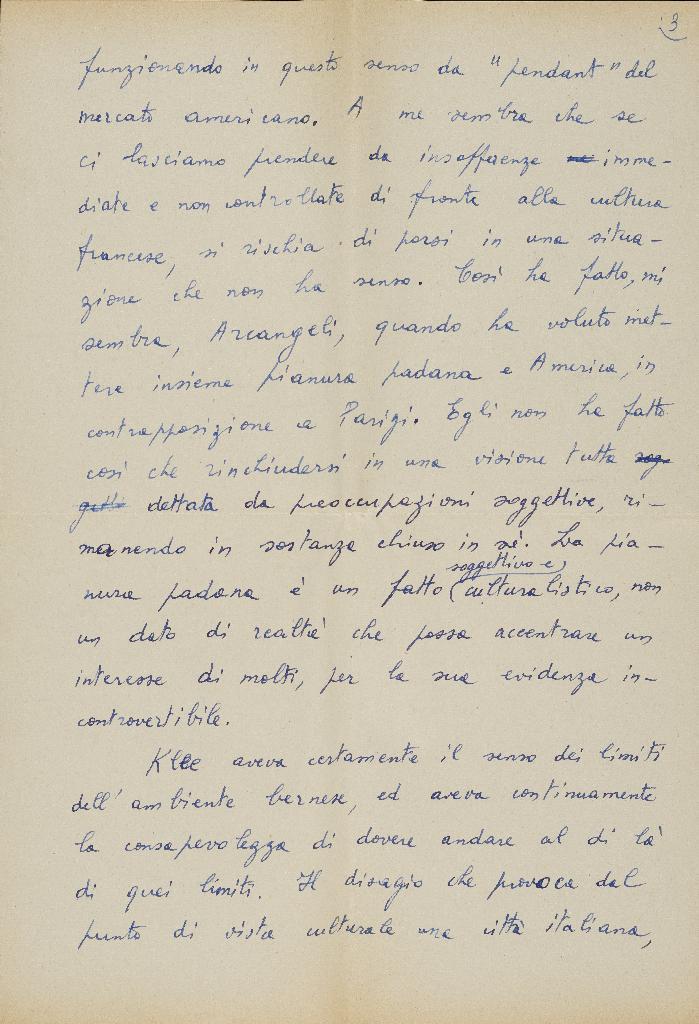 3
funzionando in questo senso da "pendant" del
mercato americano. A me sembra che se
ci lasciamo prendere da insofferenze imme-
diate e non controllate di fronte alla cultura
francese, si rischia di porsi in una situa-
zione che non ha senso. Così ha fatto, mi
sembra, Arcangeli, quando ha voluto met-
tere insieme pianura padana e America, in
contrapposizione a Parigi. Egli non ha fatto
così che rinchiudersi in una visione tutta sog-
getti dettata da preoccupazioni soggettive, ri-
manendo in sostanza chiuso in sé. La pia-
soggettivo e
nura padana è un fatto (culturalistico, non
un dato di realtà che possa accentrare un
interesse di molti, per la sua evidenza in-
controvertibile.
Klee aveva certamente il senso dei limiti
dell'ambiente bernese, ed aveva continuamente
la consapevolezza di dovere andare al di là
di quei limiti. Il disagio che provoca dal
punto di vista culturale una città italiana,